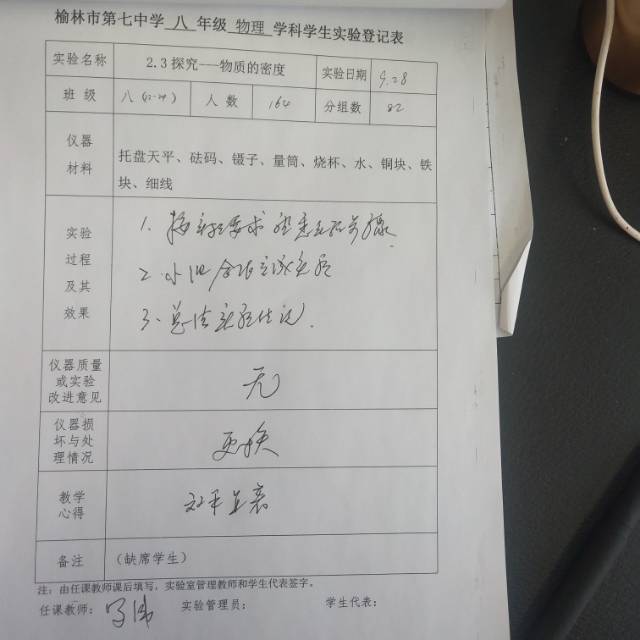 榆林市第七中学 八 年级 物理 学科学生实验登记表
实验名称 2.3 探究---物质的密度 实验日期 9.28
班 级 八 人 数 164 分组数 82
仪器
材料
托盘天平、砝码、镊子、量筒、烧杯、水、铜块、铁
块、细线
实验
过程
及其
效果
1. 按 要求 熟悉 步骤
2. 小组合作 实验
3. 总结实验情况.
仪器质量
或实验
改进意见
无
仪器损
坏与处
理情况
更换
教学
心得
备注 （缺席学生）
注：由任课教师课后填写，实验室管理教师和学生代表签字。
任课教师： 实验管理员： 学生代表：